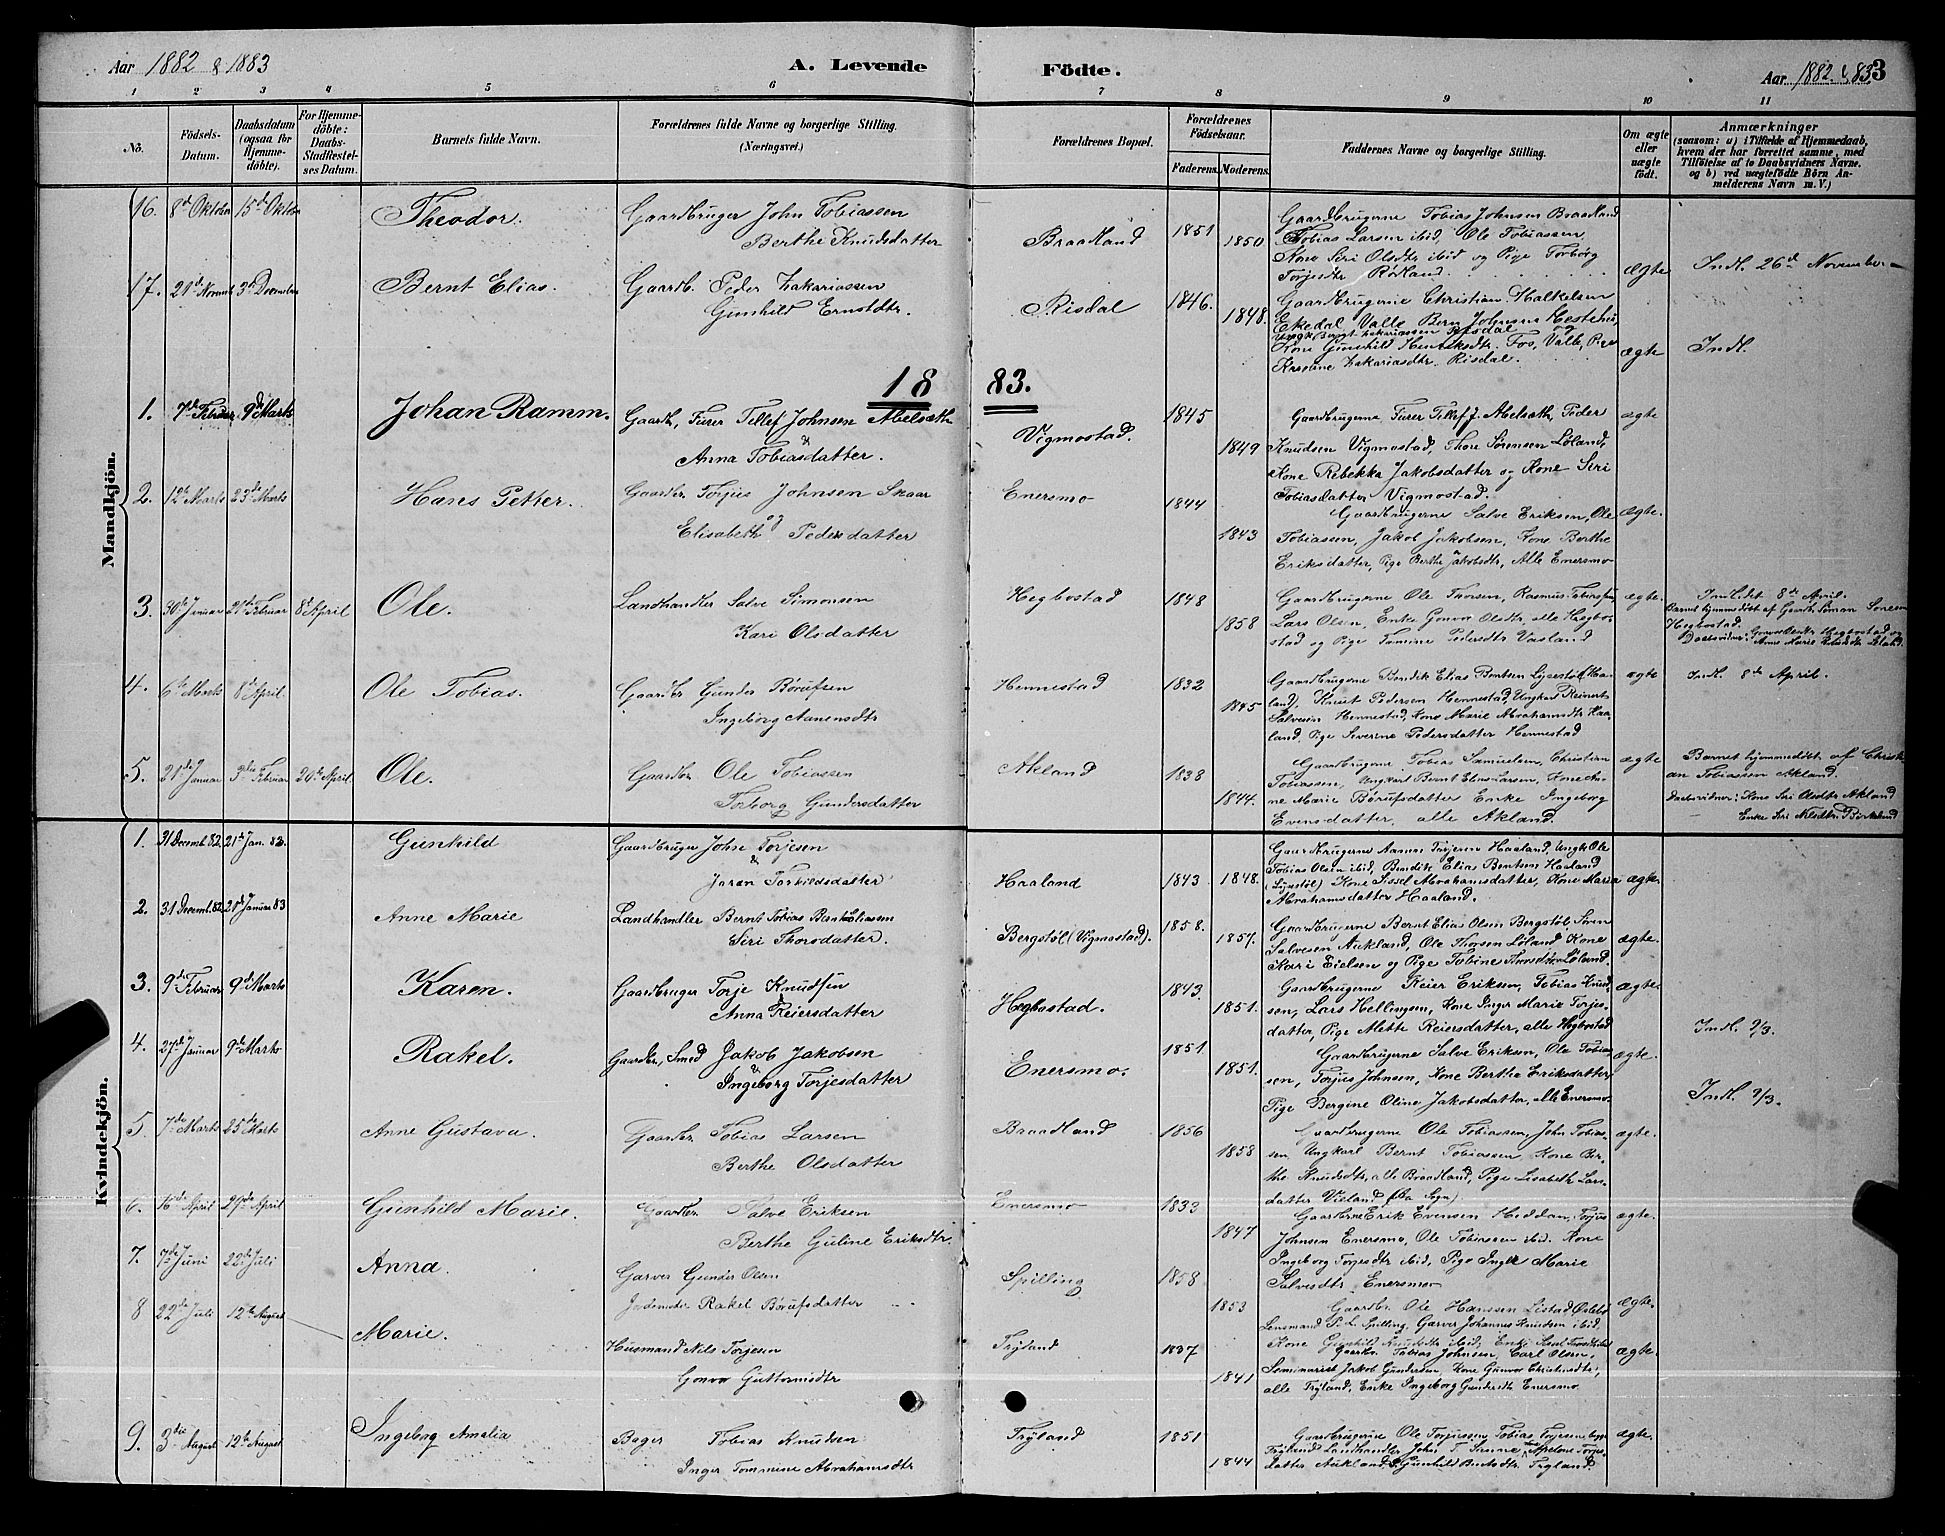 Aar 1882 & 1883
A. Levende Födte.
Aar 1882 & 83 3
1 2 3 4 5 6 7 8 9 10 11
No.
Födsels-Datum.
Daabsdatum (ogsaa for Hjemmedöbte).
For Hjemmedöbte: Daabs-Stadfæstelses Datum.
Barnets fulde Navn.
Forældrenes fulde Navne og borgerlige Stilling. (Næringsvei.)
Forældrenes Bopæl.
Forældrenes Födselsaar.
Faderens. Moderens.
Faddernes Navne og borgerlige Stilling.
Om ægte eller uægte födt.
Anmærkninger
(saasom: a) i Tilfælde af Hjemmedaab, hvem der har forrettet samme, med Tilföielse af to Daabsvidners Navne. og b) ved uægtefödte Börn Anmelderens Navn m. V.)
Mandkjön.
16. 8de Oktober 15de Oktober Theodor. Gaardbruger John Tobiassen
Berthe Knudsdatter
Braadland 1851 1850
Gaardbrugerne Tobias Johnsen Braadland
Tobias Larsen ibid, Ole Tobiassen
Kone Siri Olsdtr ibid og Pige Torborg
Torjesdtr Rödland.
Ægte Indl. 26de November
17. 21de Novemb 3de December Bernt Elias. Gaardb. Peder Zakariassen
Gunhild Ernstdtr.
Risdal 1846. 1848.
Gaardbrugerne Christian Halkelsen
Ekedal Valle Bern Johnsen Hestehei,
Ungk. Bernt Zakariassen Risdal og
Kone Gunhild Henriksdtr. Fos, Valle, Pige
Zakariasdtr. Risdal.
ægte Indl.
1883.
1. 7de Februar 9de Marts Johan Ramm. Gaardb, Furer Tellef Johnsen Abelsæth
&
Anna Tobiasdatter.
Vigmostad. 1845 1849
Gaardbrugerne Furer Tellef J. Abelsæth, Peder
Knudsen Vigmostad, Thore Sörensen Löland,
Kone Rebekka Jakobsdatter og Kone Siri
Tobiasdatter Vigmostad.
ægte
2. 12te Marts 23de Marts Hans Petter. Gaardbr. Torjus Johnsen Skaar
og
Elisabeth Pedersdatter
Enersmo 1844 1843
Gaardbrugerne Salve Eriksen, Ole
Tobiassen, Jakob Jakobsen, Kone Berthe
Eriksdatter, Pige Berthe Jakobsdtr, Alle Enersmo
ægte.
3. 30te Januar 21de Februar 8de April Ole. Landhandler Salve Simonsen
Kari Olsdatter
Hegbostad 1848 1858
Gaardbrugerne Ole Thorsen, Rasmus Tobiassen,
Lars Olsen, Enke Gonvor Olsdtr, alle Hægbo-
stad og Pige Tomine Pedersdtr Vasland
ægte.
Indl. det 8de April.
Barnet hjemmedöbt af Gaardb. Simon Sörensen
Hegbostad.
4. 6te Marts 8de April. Ole Tobias. Gaardbr Gunder Börufsen
Ingeborg Aanensdtr
Hennestad 1832 1845
Gaardbrugerne Bendik Elias Bentsen Lyestöl (Haa-
land), Knut Pedersen Hennestad, Ungkarl Reinert
Salvesen Hennestad, Kone Marie Abrahamsdtr Haa-
land, Pige Severine Pedersdatter Hennestad
ægte Indl. 8de April.
5. 21de Januar 3die Februar 20de April Ole. Gaardbr Ole Tobiassen
Torborg Gundersdatter
Akland 1838 1844.
Gaardbrugerne Tobias Samuelsen, Christian
Tobiassen, Ungkarl Bernt Elias Larsen, Kone An-
ne Marie Börufsdatter Enke Ingeborg
Evensdatter, alle Akland.
ægte
Barnet hjemmedöbt af Christi-
an Tobiassen Akland.
Daabsvidner: Kone Siri Olsdtr Akland
Enke Siri Nilsdtr. Birkeland
Kvindekjön.
1. 31 Decemb. 82. 21de Jan. 83. Gunhild Gaardbruger John Torjesen
&
Joren Torkildsdatter
Haaland 1843 1848.
Gaardbrugerne Aanen Torjesen Haaland, Ungk Ole
Tobias Olsen ibid, Bendik Elias Bentsen Haaland
(Lyestöl) Kone Sissel Abrahamsdatter, Kone Maria
Abrahamsdatter Haaland.
ægte.
2. 31 Decemb. 82. 21de Januar 83 Anne Marie Landhandler Bernt Tobias Benteliassen
Siri Thorsdatter.
Bergstöl (Vigmostad). 1858. 1857.
Gaardbrugerne Bernt Elias Olsen Bergstöl, Sören
Salvesen Aukland, Ole Thorsen Löland Kone
Kari Eielsen og Pige Tobine Thorsdtr Löland.
ægte.
3. 9de Februar 9de Marts Karen. Gaardbruger Torje Knudsen
&
Anna Reiersdatter
Hegbostad. 1843. 1851.
Gaardbrugerne Reier Eriksen, Tobias Knud-
sen, Lars Hellingsen, Kone Inger Marie Torjes-
datter, Pige Mette Reiersdatter, alle Hegbostad
ægte. Indl. 9/3.
4. 27de Januar 9de Marts Rakel. Gaardbr., Smed Jakob Jakobsen
&
Ingeborg Torjesdatter
Enersmo. 1851 1851.
Gaardbrugerne Salve Eriksen, Ole Tobias-
sen, Torjus Johnsen, Kone Berthe Eriksdatter,
Pige Bergine Oline Jakobsdatter, alle Enersmo.
ægte. Indl. 9/3.
5. 7de Marts 25de Marts Anne Gustava. Gaardbr. Tobias Larsen
Berthe Olsdatter
Braadland 1856 1858
Gaardbrugerne Ole Tobiassen, John Tobias-
sen, Ungkarl Bernt Tobiassen, Kone Ber-
the Knudsdtr, alle Braadland, Pige Lisabeth Lars-
datter Vieland (Øa Sogn)
ægte.
6. 16de April 29de April Gunhild Marie. Gaardbr. Salve Eriksen
Berthe Guline Eriksdtr.
Enersmo 1833 1847
Gaardbrne Erik Evensen Heddan, Torjus
Johnsen Enersmo, Ole Tobiassen ibid. Kone
Ingeborg Torjesdtr ibid, Pige Inger Marie
Salvesdtr Enersmo
ægte.
7. 7de Juni 22de Juli Anna. Garver Gunder Olsen
Jordemoder Rakel Börufsdatter
Spilling 1858 1853
Gaardbr. Ole Hanssen Listad Oslebö
Lensmand P. L. Spilling, Garver Johannes Knudsen ibid,
Kone Gunhild Knudsdtr ibid,
ægte.
8 22de Juli 12te August Marie. Husmand Nils Torjesen
Gonvor Guttormsdtr
Tryland 1837 1841
Gaardbr. Tobias Johnsen, Carl Olsen,
Seminarist Jakob Gundersen, Kone Gunvor Christensdtr,
alle Tryland, Enke Ingeborg Gundersdtr Enersmo
ægte.
9. 3die August 12te August Ingeborg Amalia Bager Tobias Knudsen
Inger Tommine Abrahamsdtr
Tryland 1851 1844
Gaardbrugerne Ole Torjussen, Tobias Torjesen begge
Tryland, Landhandler John T. Sunne, Apelone Torjes-
datter Aukland, Gunhild Tryland.
ægte.